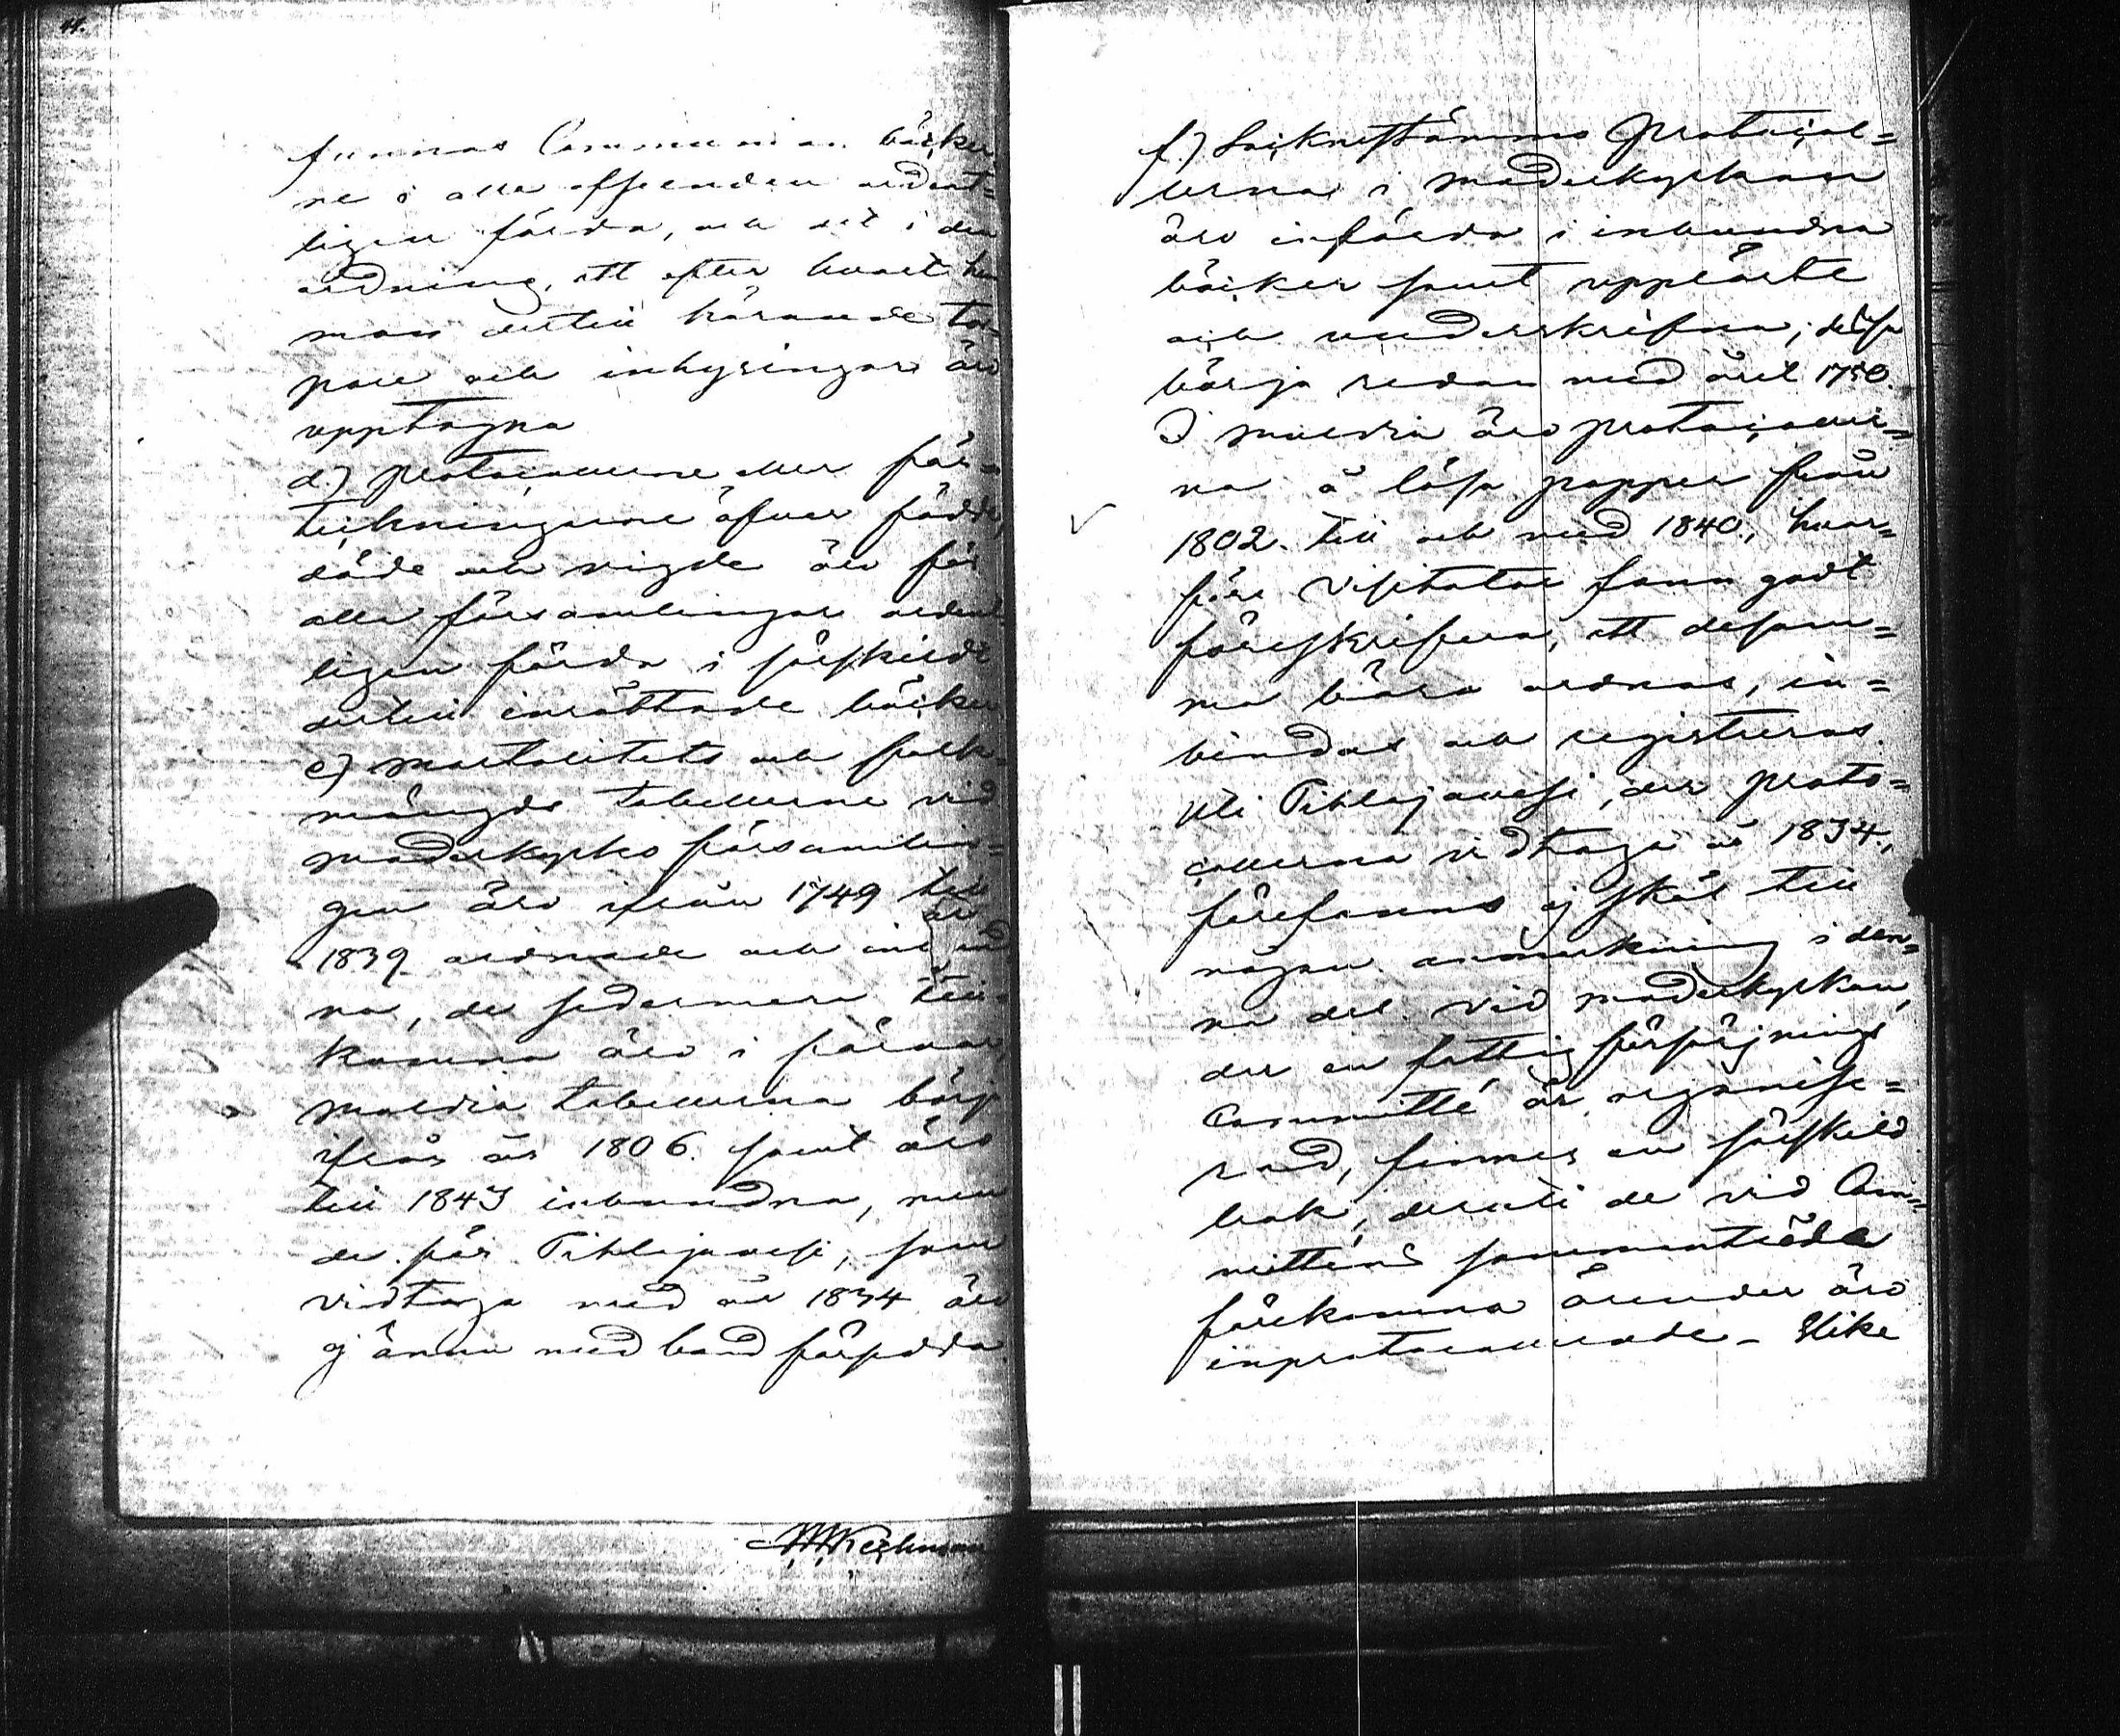 44.
funnos Communion böcker
ne i alla afseenden ordent=
ligen förda, och det i den
ordning, att efter hvart hem
man dertill hörande tor=
pare och inhysingar äro
upptagna
d.) Protocollerne eller för=
teckningarne öfver födde,
döde och vigde äro för
alla församlingar ordent
ligen förda i särskildt
dertill inrättade böcker
e) Mortalitets och folk=
mängds tabellerne vid
moderkyrko församlin=
gen äro ifrån 1749 till
år
1839 ordnade och inbund
na, de sedermera till=
komna äro i förvar,
Multia tabellerna börja
ifrån år 1806. samt äro
till 1843 inbundna, men
de för Pihlajavesi, som
vidtaga med år 1834 äro
ej ännu med band försedda.
f.) Sockenstämmo Protocol=
lerna i moderkyrkan
äro införda i inbundna
böcker samt uppläste
och underskrifna; dessa
börja redan med året 1750.
I Multia äro protocoller=
na å lösa papper från
1802. till och med 1840., hvar=
före Visitator fann godt
föreskrifva, att desam=
ma böra ordnas, in=
bindas och registreras.
Uti Pihlajavesi, der proto=
collerna vidtaga år 1834.,
förefanns ej skäl till
någon anmerkning i den=
na del. Vid moderkyrkan,
der en fattig försörjnings
Committé är organise=
rad, finnes en särskild
bok, deruti de vid Com=
mitténs sammanträde
förekomna ärender äro
inprotocollerade. Slike